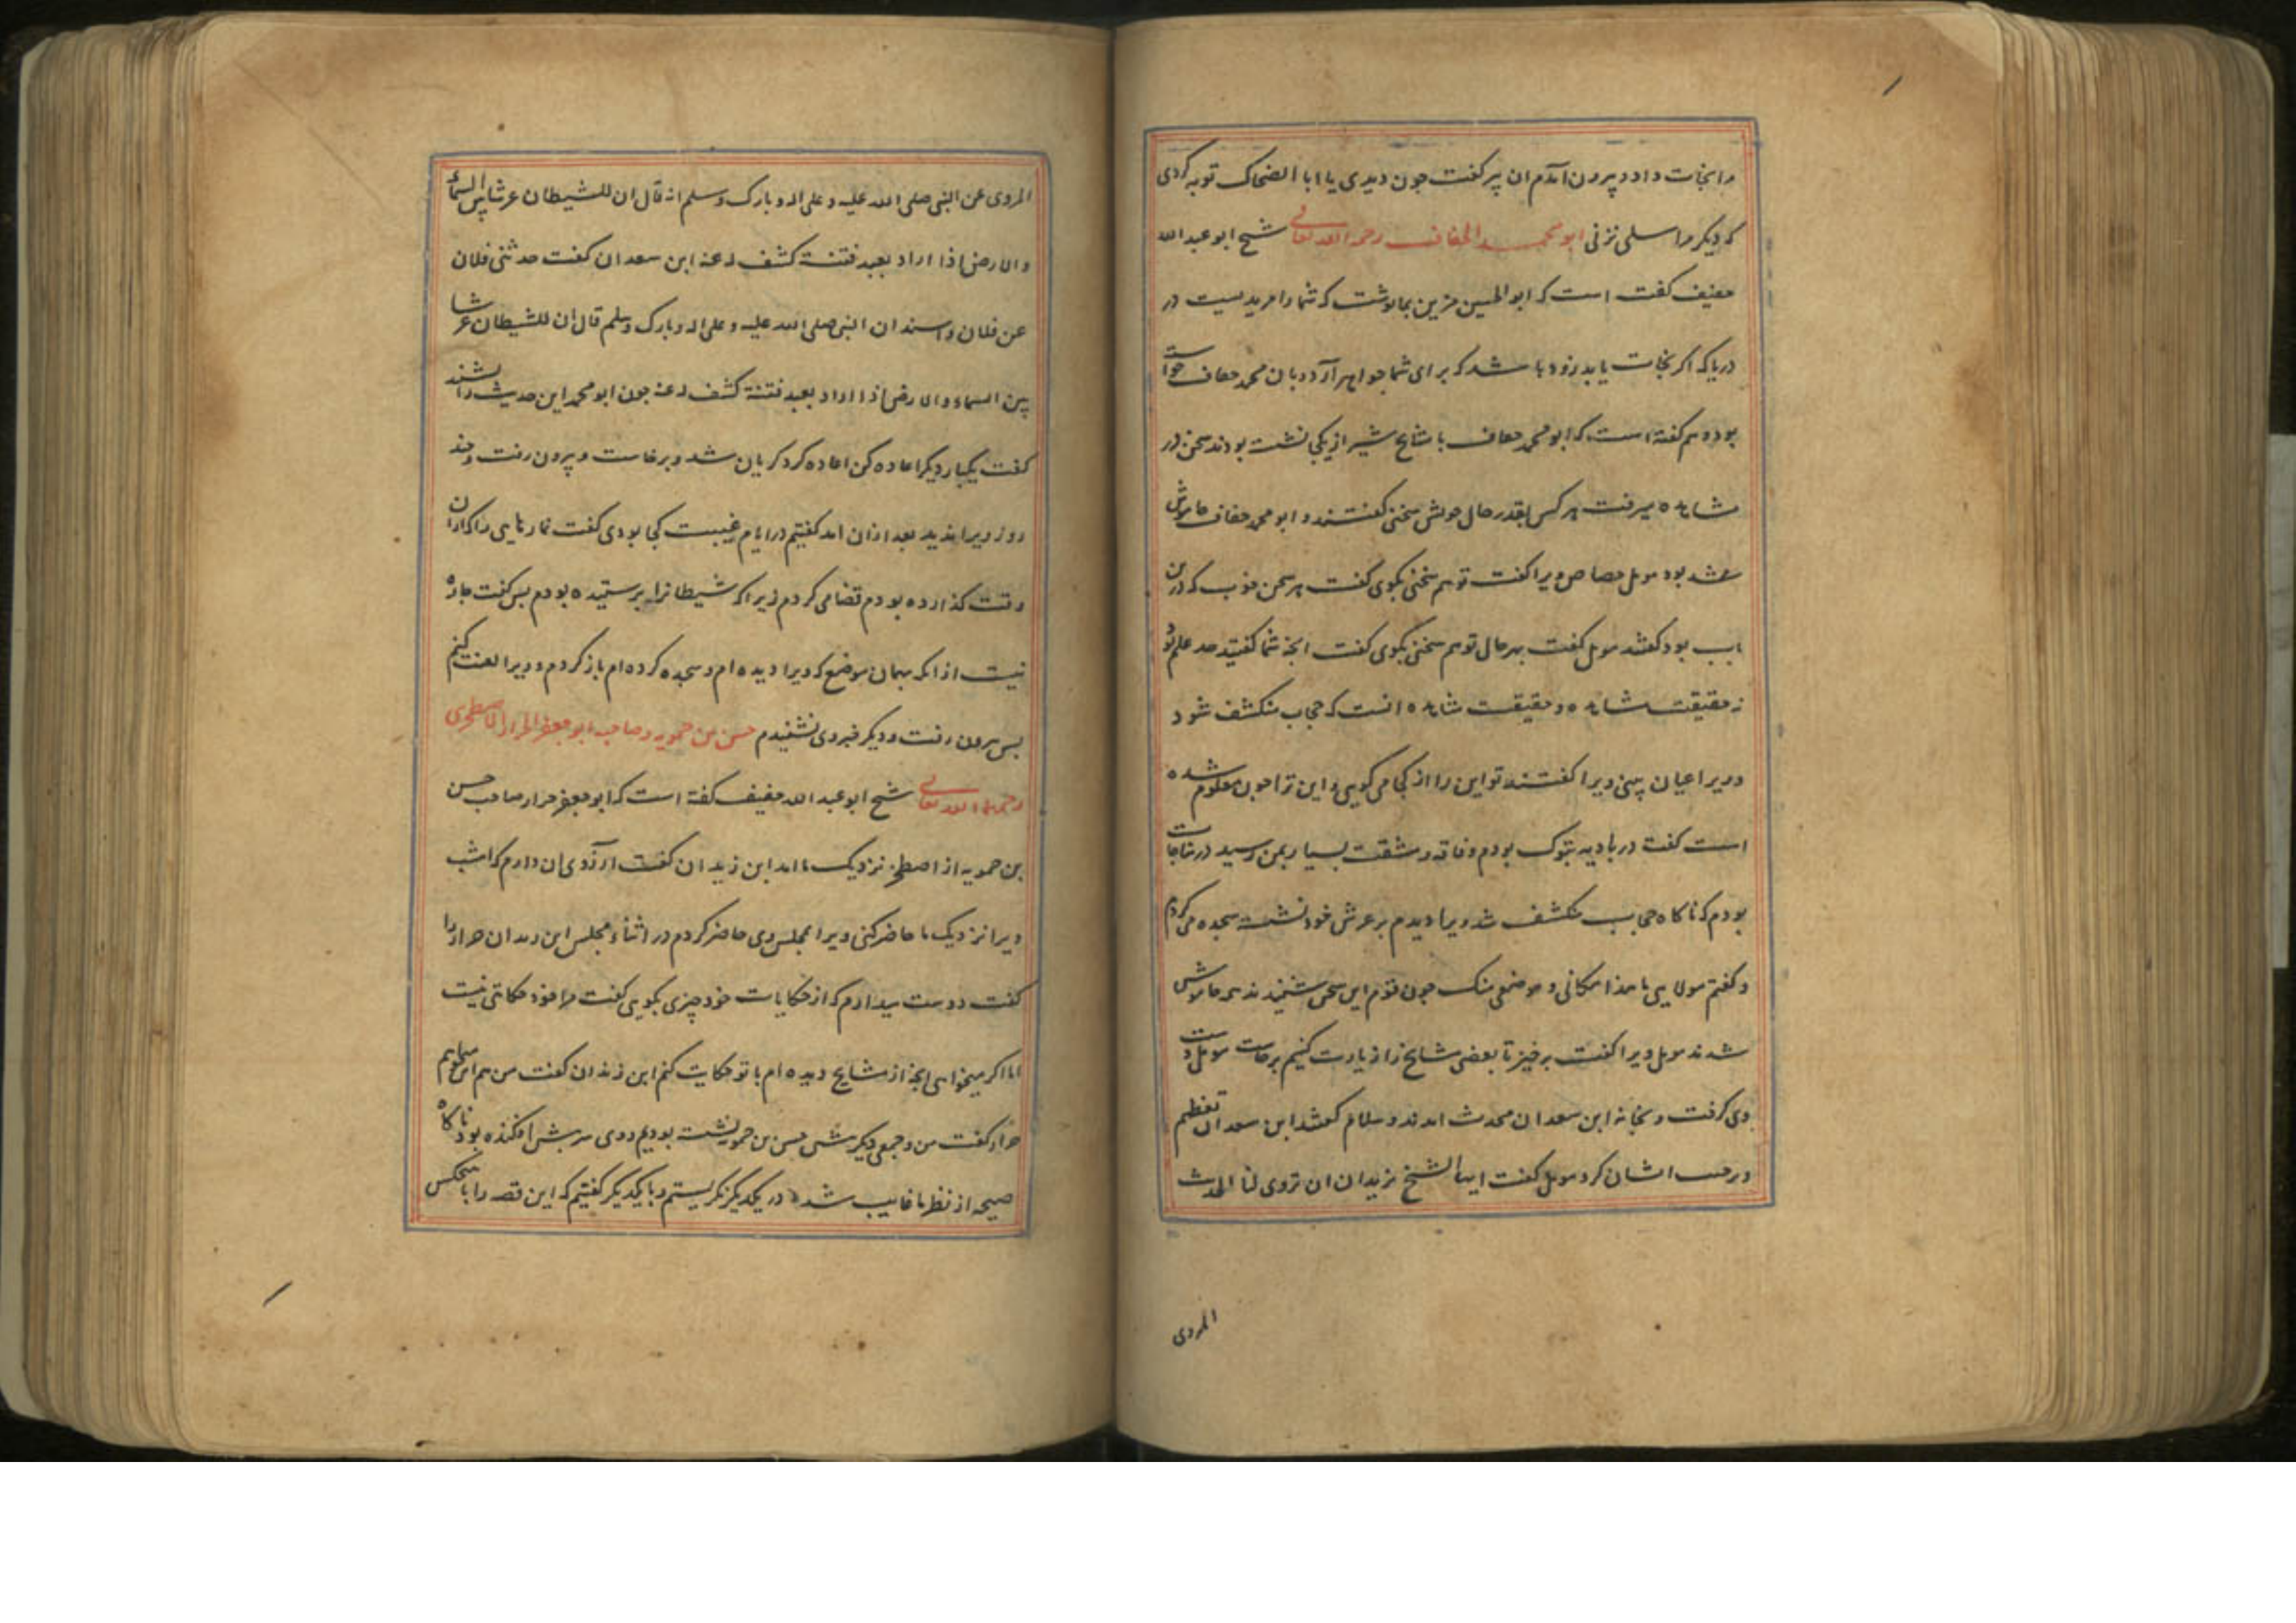 مرا نجات داد و بیرون آمدم ان پیر کفت جون دیدی یا ابا الضحاک توبه کردی
که دیکر مرا سلی نزنی ابو محمد الخفاف رحمه الله تعالی شیخ ابو عبد الله
خفیف کفت است که ابو الحسین مزین بما نوشت که شما را مریدیست در
دریا که اکر نجات یابد زود باشد که برای شما جواهر آرد و بان محمد خفاف خواست
بود و هم کفته است که ابو محمد خفاف با مشایخ شیراز یکجا نشسته بودند سخن در
مشاهده میرفت هر کس بقدر حال خویش سخنی کفتند و ابو محمد خفاف خاموش
شد بود مومل جصاص ویرا کفت تو هم سخنی بکوی کفت هر سخن خوب که درین
باب بود کفتند مومل کفت بهر حال تو هم سخنی بکوی کفت انجه شما کفتید حد علم بود
نه حقیقت مشاهده و حقیقت مشاهده انست که حجاب منکشف شود
و ویرا عیان بینی ویرا کفتند تو این را از کجا می کویی و این ترا جون معلوم شده
است کفت در بادیه تبوک بودم و فاقه و مشقت بسیار بمن رسید در مناجات
بودم که ناکاه حجاب منکشف شد ویرا دیدم بر عرش خود نشسته سجده می کردم
و کفتم مولایی ما هذا مکانی و موضعی منک جون قوم این سخن شنیدند همه خاموش
شدند مومل ویرا کفت برخیز تا بعضی مشایخ را زیارت کنیم برخاست مومل دست
وی کرفت و بخانه ابن سعدان محدث امدند و سلام کفتند ابن سعدان تعظیم
و ترحیب ایشان کرد مومل کفت ایها الشیخ نرید ان تروی لنا الحدیث
المروی
المروی عن النبی صلی الله علیه و علی اله و بارک و سلم انه قال ان للشیطان عرشا بین السماء
والارض اذا اراد بعبد فتنة کشف له عنه ابن سعدان کفت حدثنی فلان
عن فلان و اسند ان النبی صلی الله علیه و علی اله و بارک وسلم قال ان للشیطان عرشا
بین السماء والارض اذا اراد بعبد فتنة کشف له عنه جون ابو محمد این حدیث را شنید
کفت یکبار دیکر اعاده کن اعاده کرد کریان شد و برخاست و بیرون رفت و جند
روز ویرا ندیدیم بعد ازان امد کفتیم در ایام غیبت کجا بودی کفت نمازهایی را که ازان
وقت کذارده بودم قضا می کردم زیرا که شیطانرا پرستیده بودم بس کفت جاره
نیست از انکه بهمان موضع که ویرا دیده ام و سجده کرده ام باز کردم و ویرا لعنت کنم
بس بیرون رفت و دیکر خبر وی نشنیدم حسن بن حمویه و صاحبه ابو جعفر الحرار الاصطخری
رحمهما الله تعالی شیخ ابو عبد الله خفیف کفته است که ابو جعفر حرار صاحب حسن
بن حمویه از اصطخر نزدیک ما امد ابن زیدان کفت آرزوی ان دارم که امشب
ویرا نزدیک ما حاضر کنی ویرا بمجلس وی حاضر کردم در اثناء مجلس ابن زیدان حرار را
کفت دوست میدارم که از حکایات خود چیزی بکویی کفت مرا خود حکایتی نیست
اما اکر میخواهی انجه از مشایخ دیده ام با تو حکایت کنم ابن زیدان کفت من هم این میخواهم
حرار کفت من و جمعی دیکر پیش حسن بن حمویه نشسته بودیم و وی سر پیش افکنده بود ناکاه
صیحه از نظر ما غایب شد در یکدیکر نکریستیم و با یکدیکر کفتیم که این قصه را با هیچکس